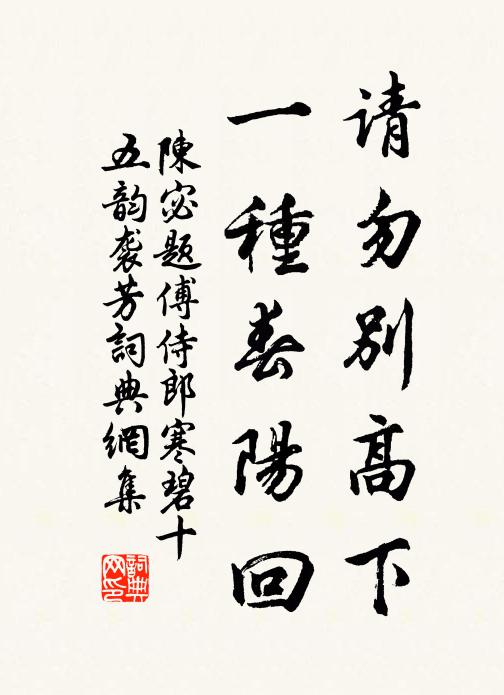 请勿别高下
一種春陽回
陳宓题傅侍郎寒碧十
五韵袭芳詞典網集
詞典网印